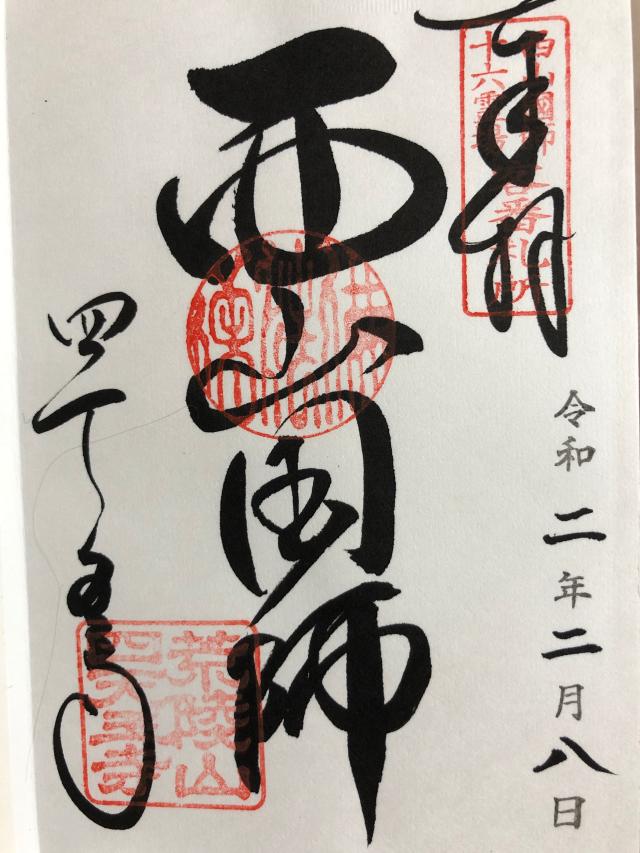 奉拝
西山國師
十六霊場
番札所
令和二年二月八日
西山国師
四天王寺
荒陵山
四天王寺